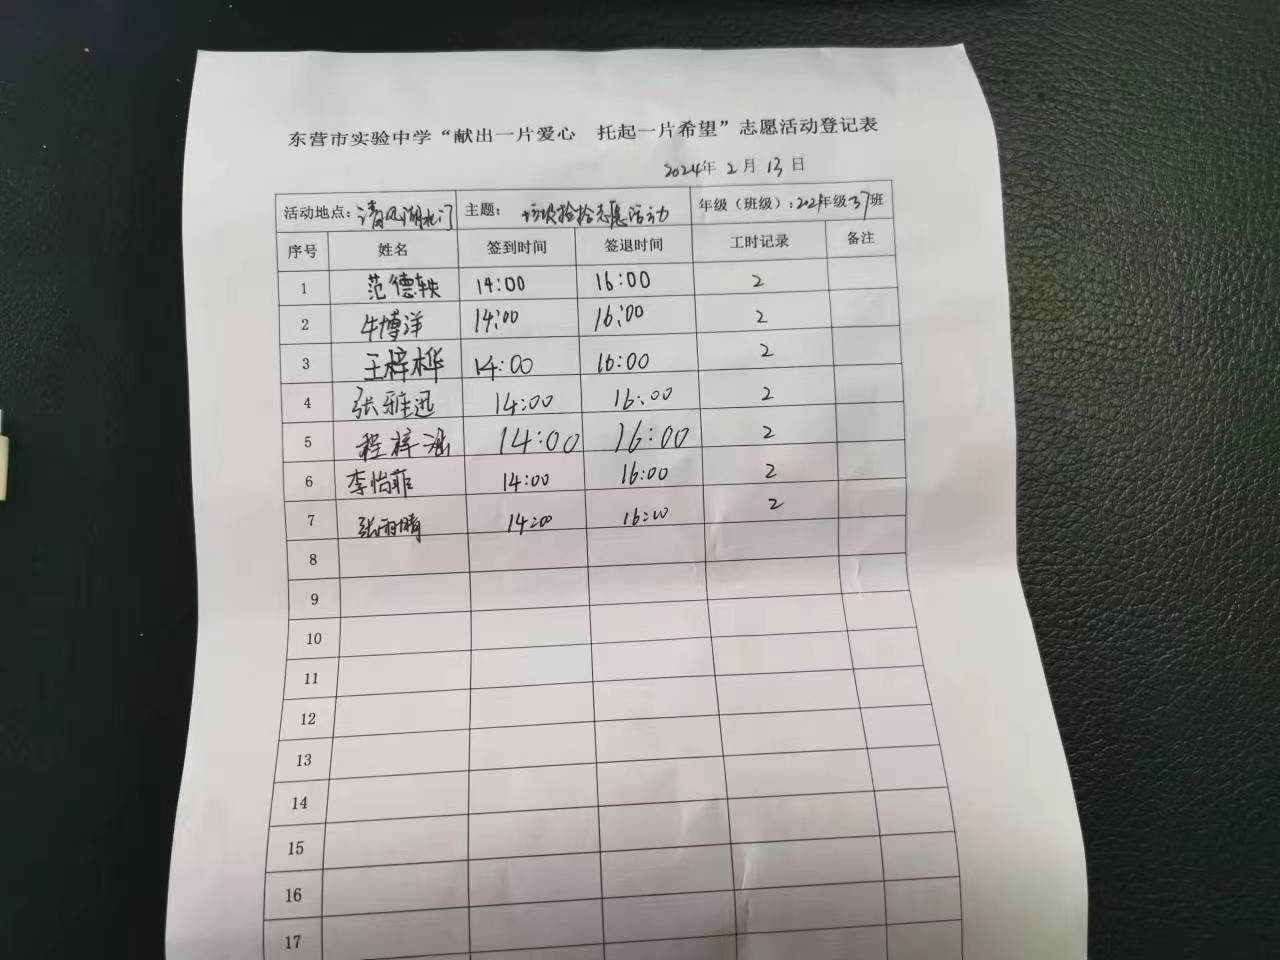 东营市实验中学“献出一片爱心 托起一片希望”志愿活动登记表
2024年 2 月 13 日
活动地点：清风湖北门 主题： 垃圾捡拾志愿活动 年级（班级）：2021年级37班
序号 姓名 签到时间 签退时间 工时记录 备注
1 范德轶 14:00 16:00 2
2 牛博洋 14:00 16:00 2
3 王梓桦 14:00 16:00 2
4 张雅迅 14:00 16:00 2
5 程梓涵 14:00 16:00 2
6 李怡菲 14:00 16:00 2
7 张雨晴 14:00 16:00 2
8
9
10
11
12
13
14
15
16
17